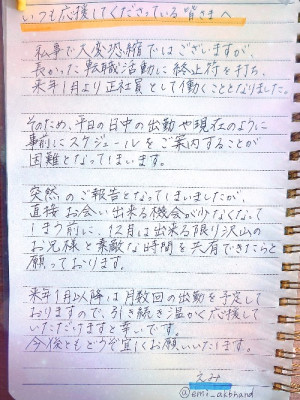 いつも応援してくださっている皆さまへ
私事で大変恐縮ではございますが、
長かった転職活動に終止符を打ち、
来年1月より正社員として働くこととなりました。
そのため、平日の日中の出勤や現在のように
事前にスケジュールをご案内することが
困難となってしまいます。
突然のご報告となってしまいましたが、
直接お会い出来る機会が少なくなって
しまう前に、12月は出来る限り沢山の
お兄様と素敵な時間を共有できたらと
願っております。
来年1月以降は月数回の出勤を予定して
おりますので、引き続き温かく応援して
いただけますと幸いです。
今後ともどうぞ宜しくお願いいたします。
えみ
@emi_akbhand